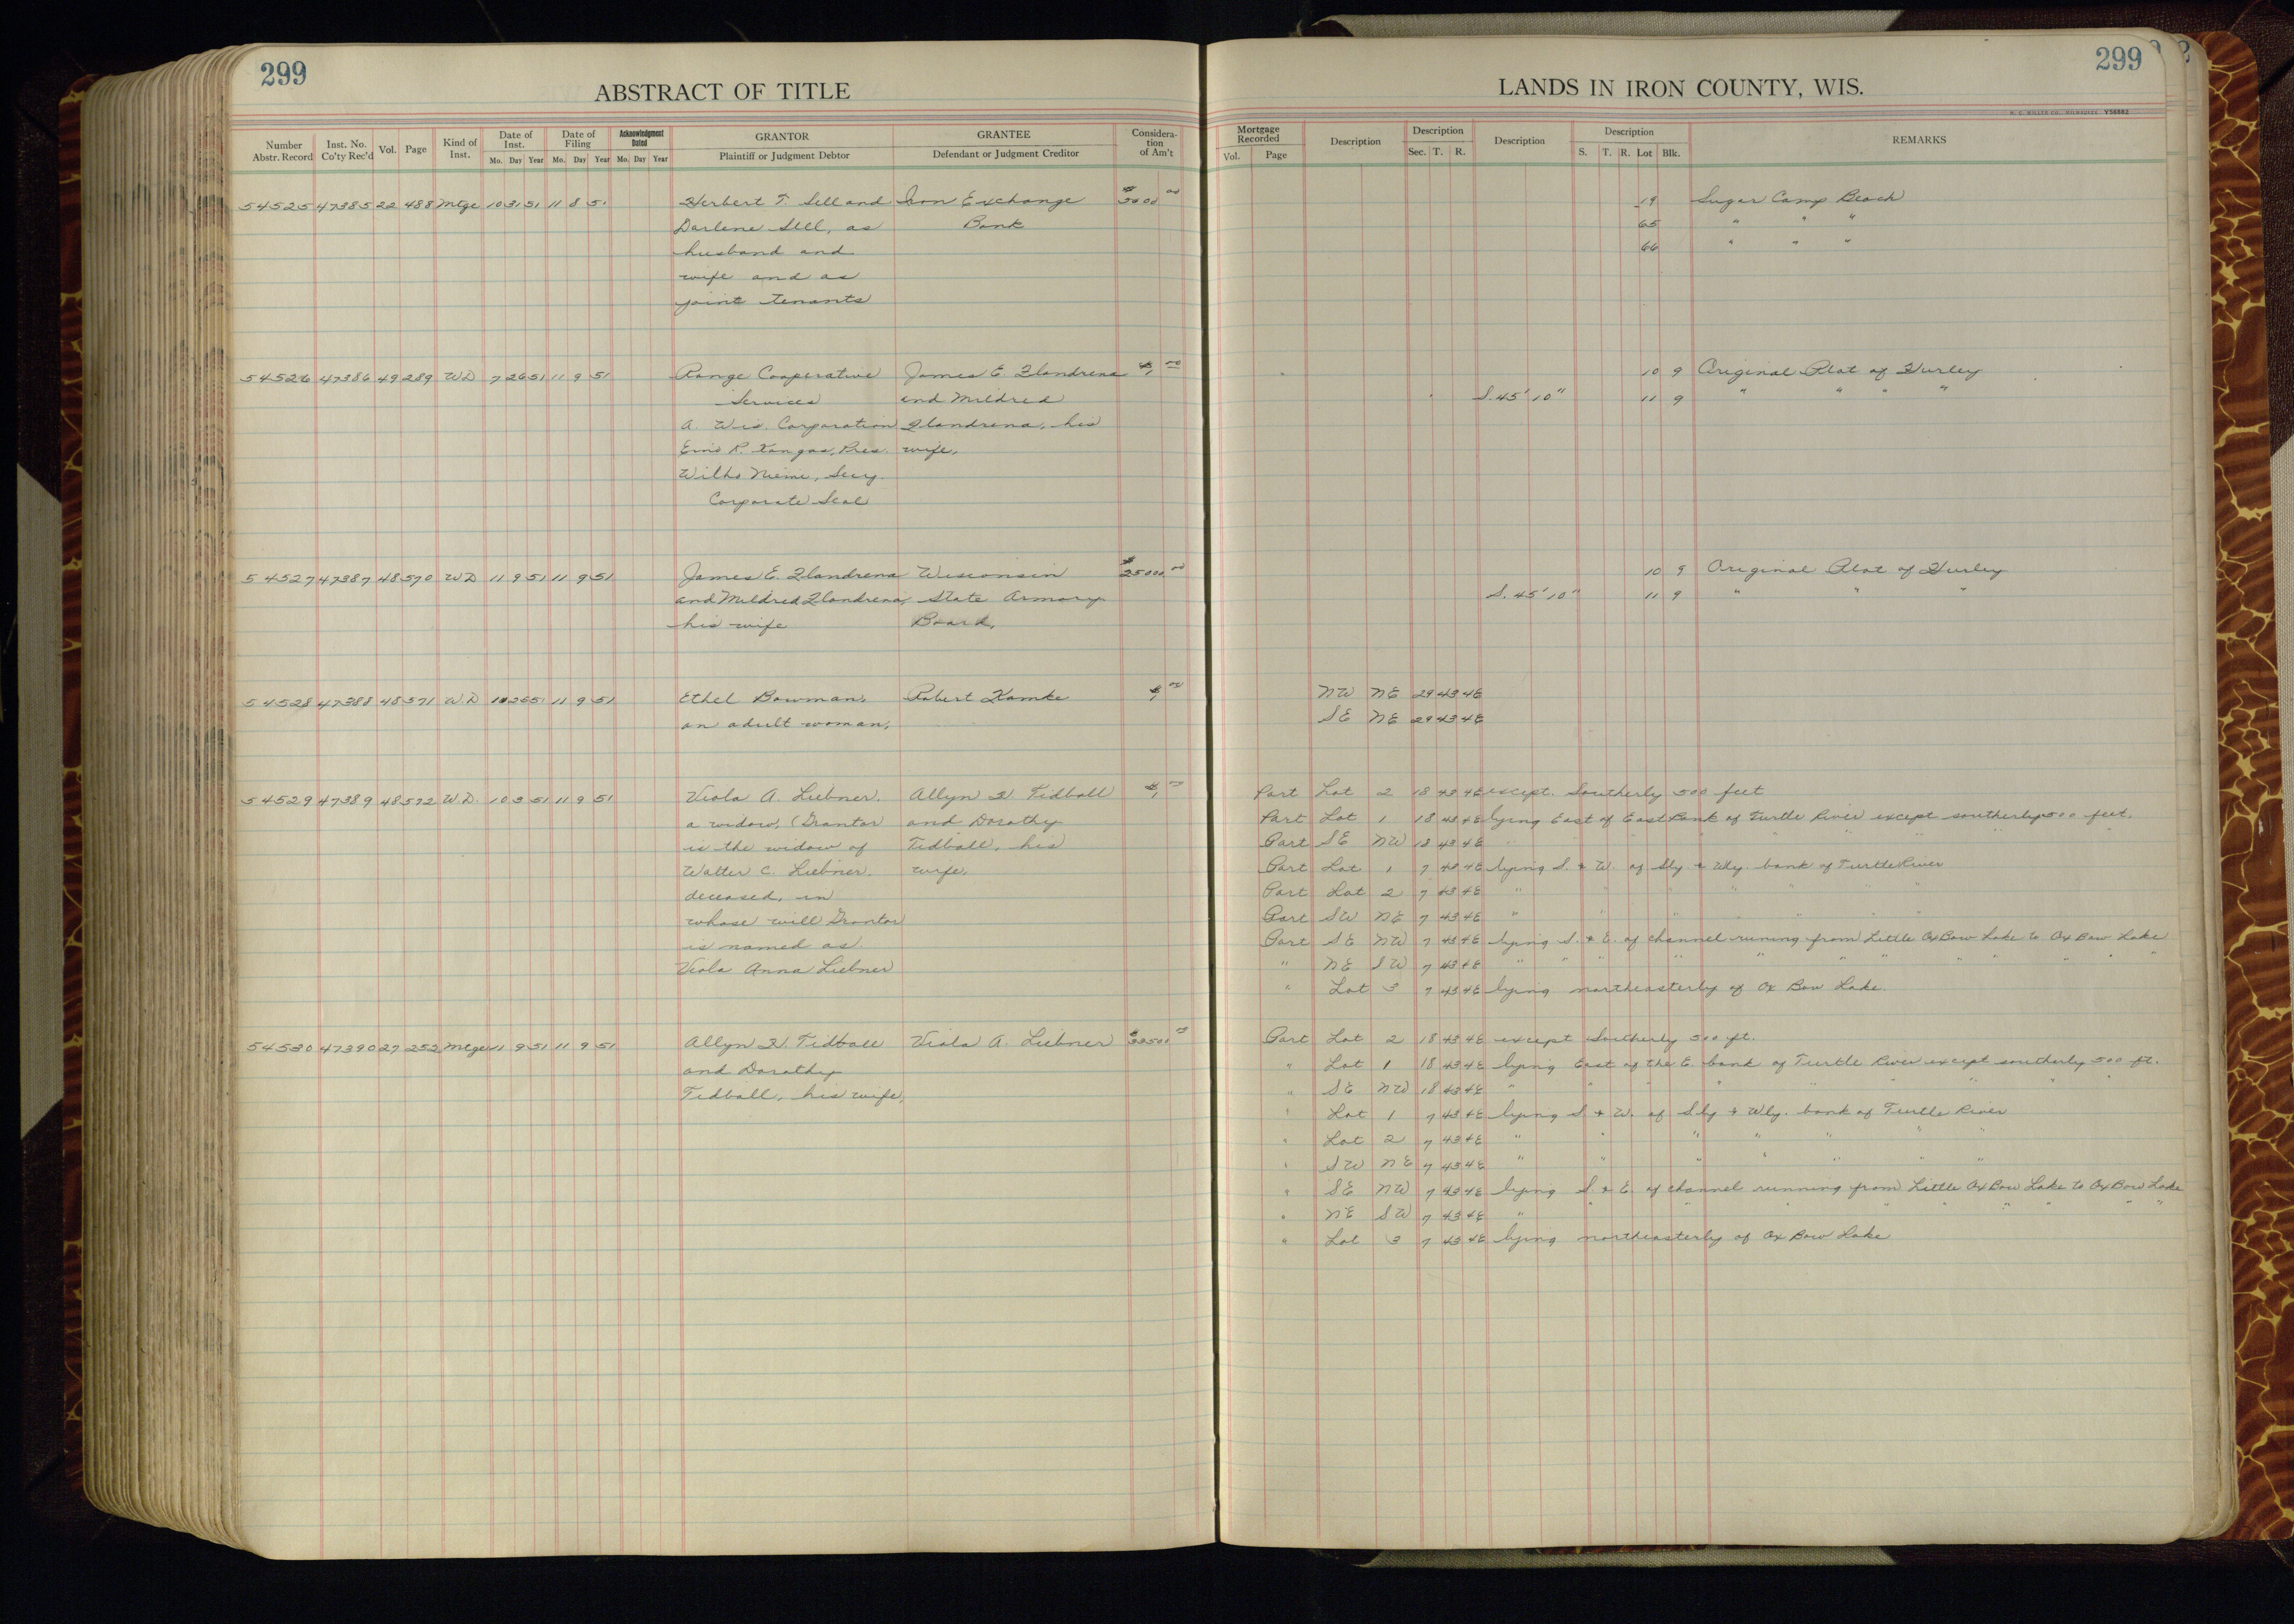 299
ABSTRACT OF TITLE
Number Abstr. Record Inst. No. Co'ty Rec'd Vol. Page Kind of Inst. Date of Inst. Mo. Day Year Date of Filing Mo. Day Year Acknowledgment Dated Mo. Day Year GRANTOR Plaintiff or Judgment Debtor GRANTEE Defendant or Judgment Creditor Considera-tion of Am't
54525 47385 22 488 Mtge 10 31 51 11 8 5 Herbert T. Sell and Iron Exchange
Darlene Sell, as Bank
husband and
wife and as
joint tenants
54526 47386 49 289 WD 7 26 51 11 9 51 Range Cooperative James E. Flandrena $1 00
Services and Mildred
A. Wis. Corporation Flandrena, his
Eino R. Tangas, Pres. wife,
Wilho Niemi, Secy.
Corporate Seal
54527 47387 48 570 WD 11 9 51 11 9 51 James E. Flandrena Wisconsin $25000 00
and Mildred Flandrena, State Armory
his wife Board,
54528 47388 48 571 WD 10 26 51 11 9 51 Ethel Bowman, Robert Kamke $1 00
an adult woman,
54529 47389 48 572 W.D. 10 3 51 11 9 51 Viola A. Liebner, Allyn H. Tidball $1 00
a widow, (Grantor and Dorothy
is the widow of Tidball, his
Walter C. Liebner, wife,
deceased, in
whose will Grantor
is named as
Viola Anna Liebner
54530 47390 27 252 Mtge 11 9 51 11 9 51 Allyn H. Tidball Viola A. Liebner
and Dorothy
Tidball, his wife,
299
LANDS IN IRON COUNTY, WIS.
H. C. MILLER CO., MILWAUKEE V58882
Mortgage Recorded Vol. Page Description Description Sec. T. R. Description Description S. T. R. Lot Blk. REMARKS
19 Sugar Camp Beach
65 " " "
66 " " "
10 9 Original Plat of Hurley
S. 45' 10" 11 9 " " " "
10 9 Original Plat of Hurley
S. 45' 10" 11 9 " " "
NW NE 29 43 4E
SE NE 29 43 4E
Part Lot 2 18 43 4E except. Southerly 500 feet
Part Lot 1 18 43 4E lying East of East Bank of Turtle River except southerly 500 feet.
Part SE NW 18 43 4E " " " " " "
Part Lot 1 7 43 4E lying S. & W. of Sly & Wly bank of Turtle River
Part Lot 2 7 43 4E " " " " " " "
Part SW NE 7 43 4E " " " " " " "
Part SE NW 7 43 4E lying S. & E. of channel runing from Little Ox Bow Lake to Ox Bow Lake
" NE SW 7 43 4E " " " " " " " " " " " "
" Lot 3 7 43 4E lying northeasterly of Ox Bow Lake.
Part Lot 2 18 43 4E except Southerly 500 ft.
" Lot 1 18 43 4E lying East of the E. bank of Turtle River except southerly 500 ft.
" SE NW 18 43 4E " " " " " " " "
" Lot 1 7 43 4E lying S & W. of Sly & Wly. bank of Turtle River
" Lot 2 7 43 4E " " " " " " "
" SW NE 7 43 4E " " " " " " "
" SE NW 7 43 4E lying S & E. of channel running from Little Ox Bow Lake to Ox Bow Lake
" NE SW 7 43 4E " " " " " " " " " "
" Lot 3 7 43 4E lying northeasterly of Ox Bow Lake